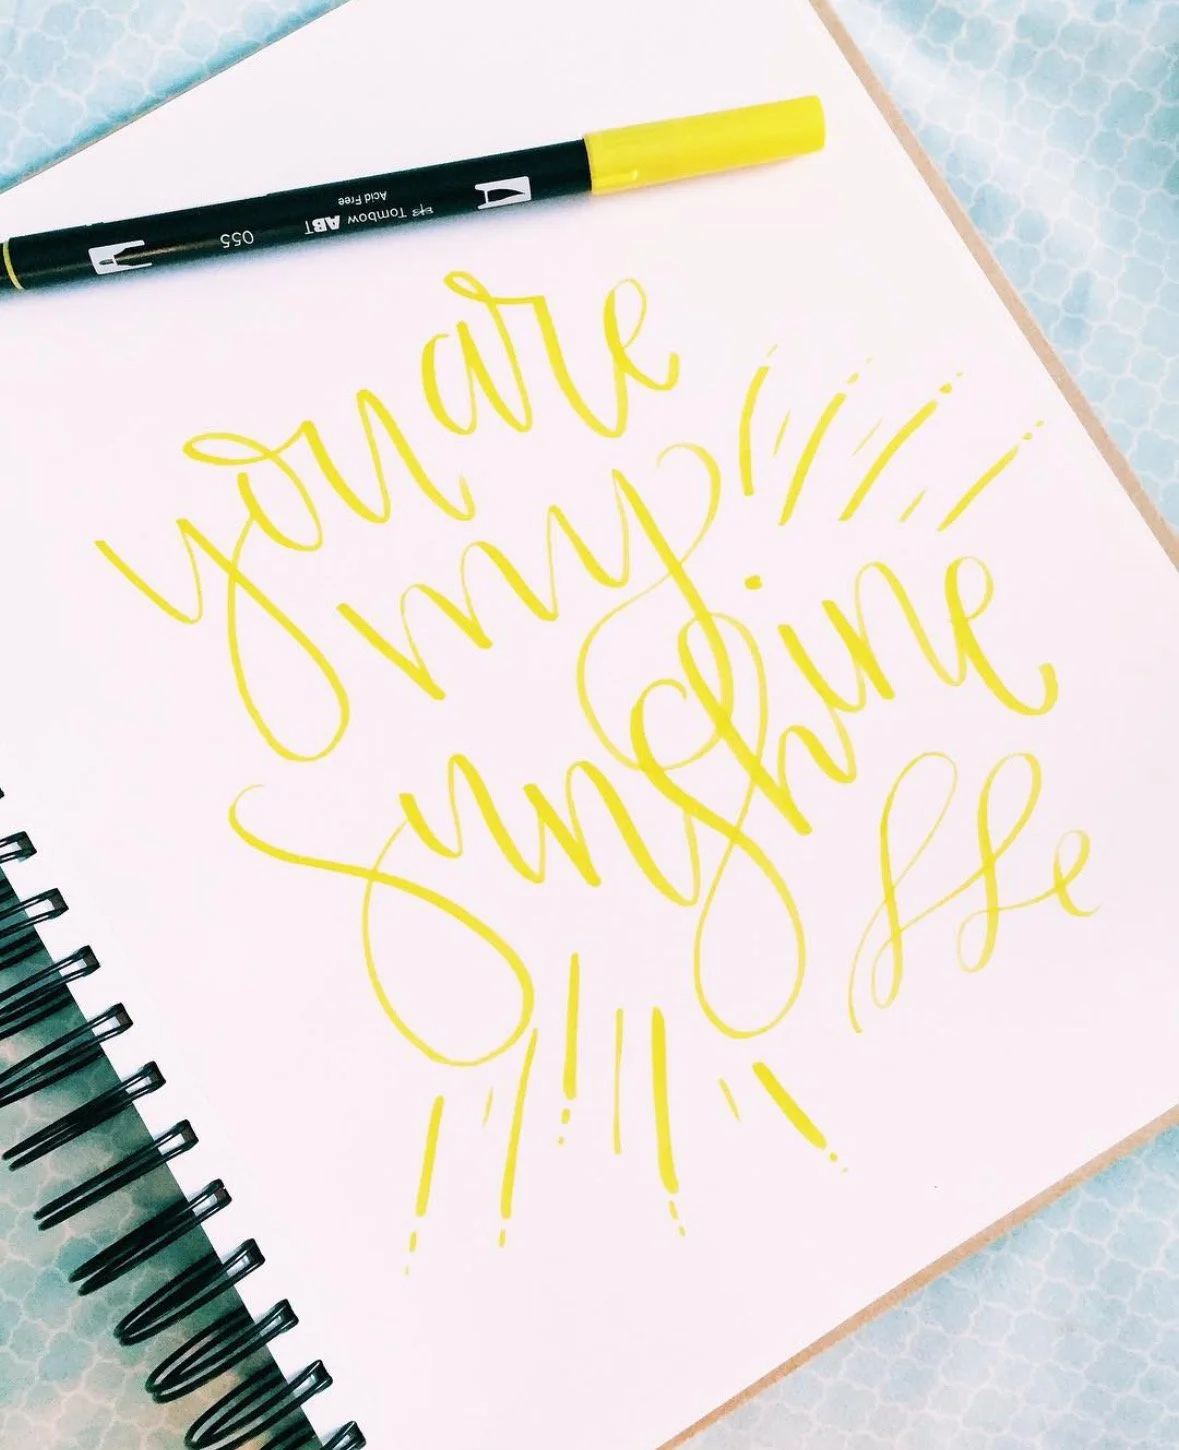 055 Tombow ABT
Acid Free
you are
my
sunshine